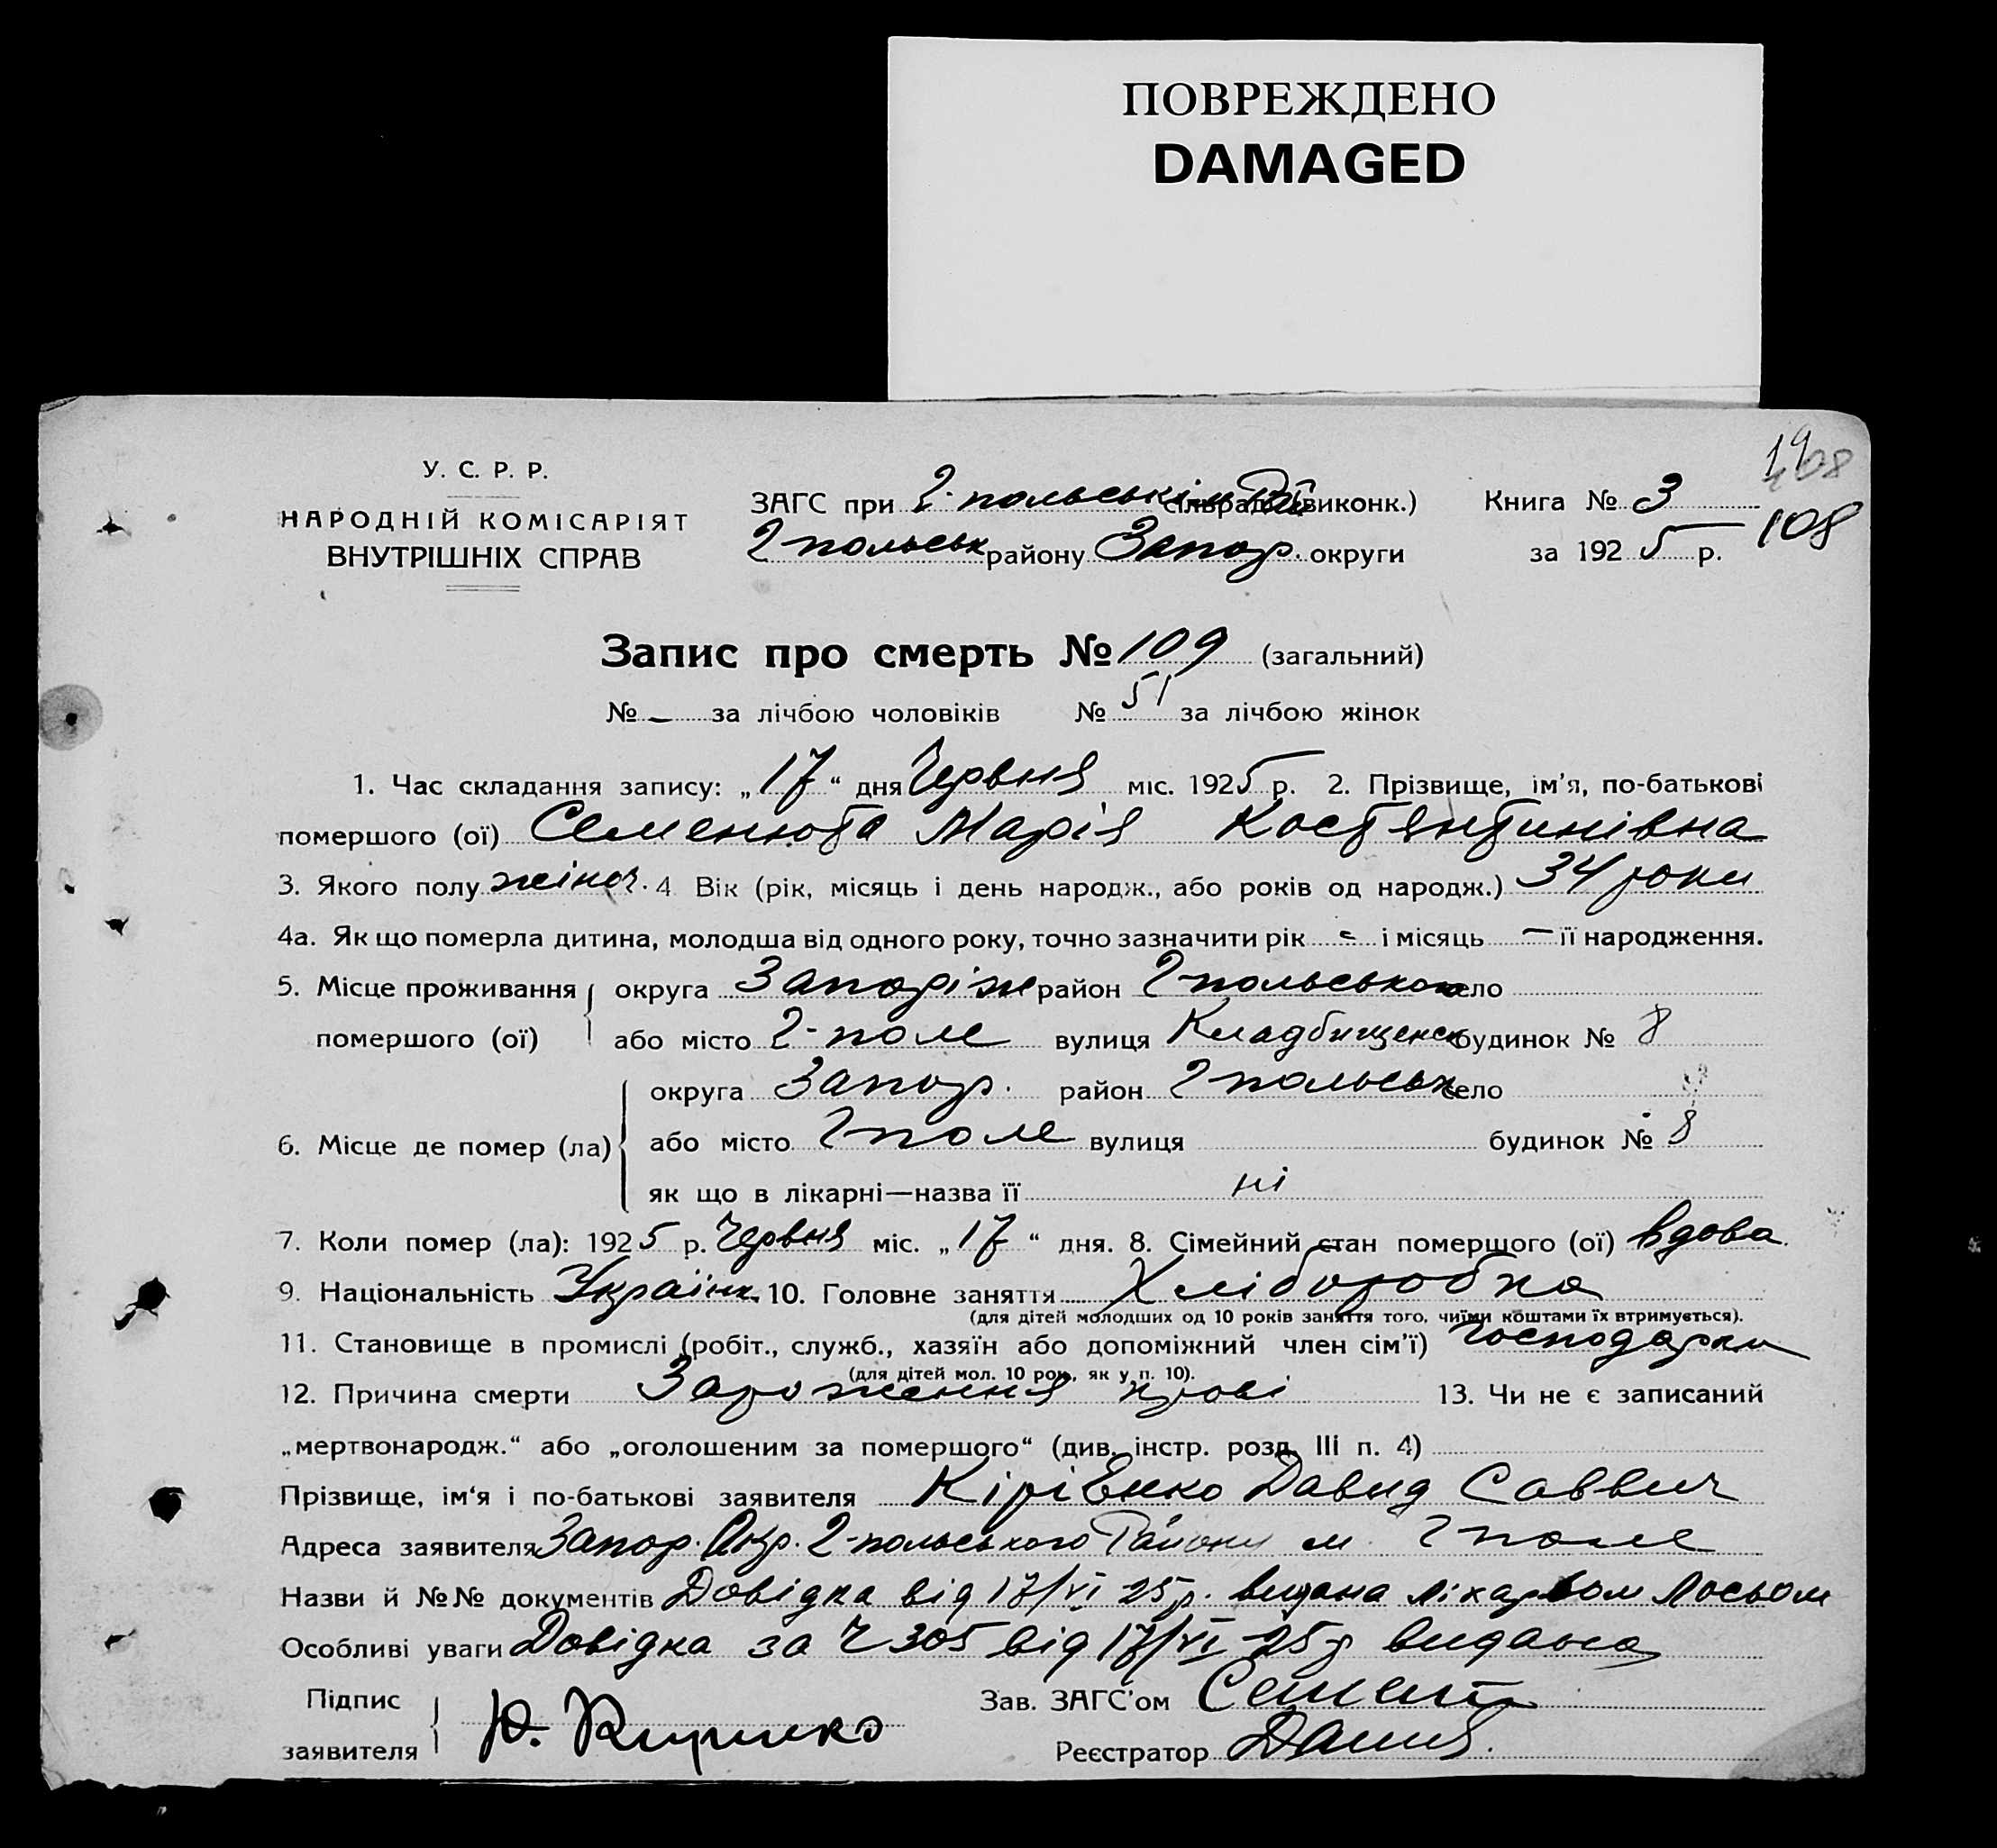 ПОВРЕЖДЕНО
DAMAGED
198
108
У. С. Р. Р.
НАРОДНІЙ КОМІСАРІЯТ
ВНУТРІШНІХ СПРАВ
ЗАГС при Г-польськім сільраді (Рай виконк.)
Г польськ району Запор. округи
Книга № 3
за 1925 р.
Запис про смерть № 109 (загальний)
№ – за лічбою чоловіків № 51 за лічбою жінок
1. Час складання запису: „17“ дня Червня міс. 1925 р. 2. Прізвище, ім'я, по-батькові
помершого (ої) Семенюта Марія Костянтинівна
3. Якого полу жіноч. 4 Вік (рік, місяць і день народж., або років од народж.) 34 роки
4а. Як що померла дитина, молодша від одного року, точно зазначити рік - і місяць – її народження.
5. Місце проживання округа Запоріж район Г-польського село
помершого (ої) або місто Г-поле вулиця Кладбищенск будинок № 8
округа Запор. район Г польськ село
6. Місце де помер (ла) або місто Г поле вулиця будинок № 8
як що в лікарні—назва її ні
7. Коли помер (ла): 1925 р. Червня міс. „17“ дня. 8. Сімейний стан помершого (ої) вдова.
9. Національність Українк. 10. Головне заняття Хліборобка
(для дітей молодших од 10 років заняття того, чиїми коштами їх втримується).
11. Становище в промислі (робіт., служб., хазяїн або допоміжний член сім'ї) господарка
(для дітей мол. 10 рок., як у п. 10).
12. Причина смерти Зароження крові 13. Чи не є записаний
„мертвонародж.“ або „оголошеним за помершого“ (див. інстр. розд. III п. 4)
Прізвище, ім'я і по-батькові заявителя Кірієнко Давид Саввич
Адреса заявителя Запор. Окр. Г-польського Району м. Г поле
Назви й №№ документів Довідка від 17/VI 25 р. видана лікарьом Лосьом
Особливі уваги Довідка за Ч 305 від 17/VI-25 р видана
Підпис заявителя Зав. ЗАГС'ом
Реєстратор